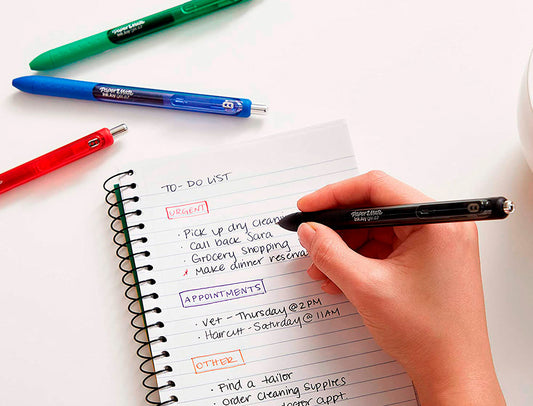 Paper Mate
InkJoy gel 0.7
Paper Mate
InkJoy gel 0.7
TO-DO LIST
URGENT
· Pick up dry cleani
· Call back Sara
· Grocery shopping
* Make dinner reserva
Paper Mate
InkJoy gel
APPOINTMENTS
· Vet - Thursday @ 2PM
· Haircut - Saturday @ 11AM
OTHER
· Find a tailor
· Order cleaning supplies
doctor appt.